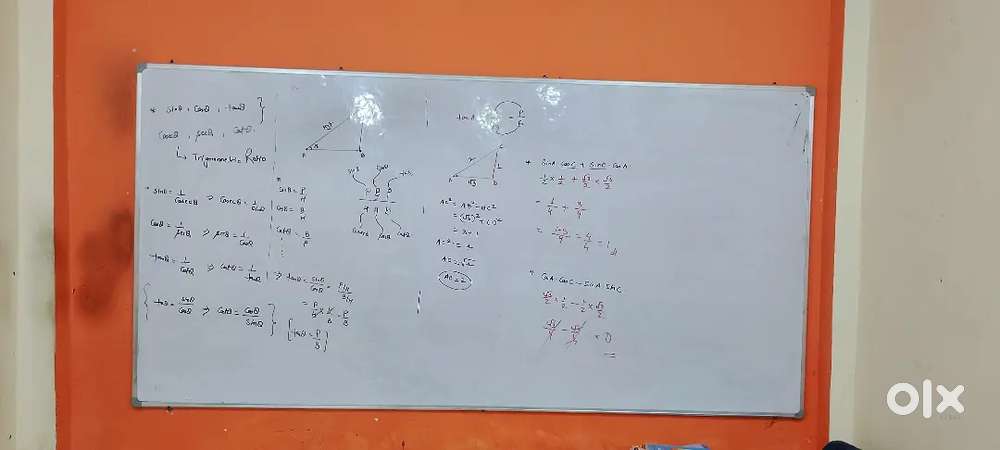 * sinθ, cosθ, tanθ
cosecθ, secθ, cotθ.
↳ Trigonometric Ratio
* sinθ = 1/cosecθ ⇒ cosecθ = 1/sinθ
cosθ = 1/secθ ⇒ secθ = 1/cosθ
tanθ = 1/cotθ ⇒ cotθ = 1/tanθ
{ tanθ = sinθ/cosθ ⇒ cotθ = cosθ/sinθ }
A
B
sinθ = P/H
cosθ = B/H
cotθ = B/P
⇒ tanθ = sinθ/cosθ = P/H / B/H
[ tanθ = P/B ]
tan A =
C
2
1
A
√3
B
AC² = AB² + BC²
= (√3)² + (1)²
= 3 + 1
AC² = 4
AC = √4
AC = 2
* sinA · cosC + sinC · cosA
1/2 × 1/2 + √3/2 × √3/2
= 1/4 + 3/4
= 1+3/4 = 4/4 = 1
* cosA · cosC - sinA · sinC
√3/2 × 1/2 - 1/2 × √3/2
√3/4 - √3/4 = 0
olx